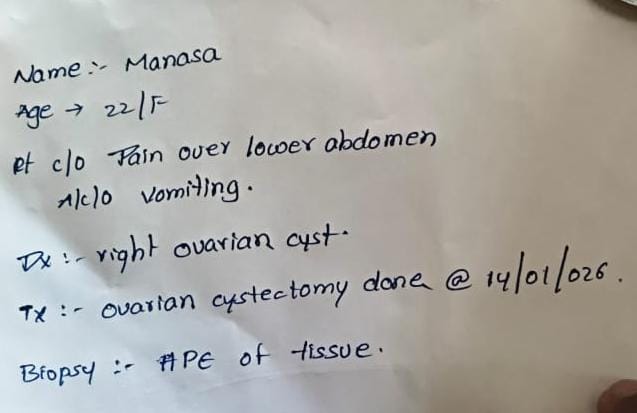 Name :- Manasa
Age → 22/F
pt c/o Pain over lower abdomen
A/c/o vomiting.
Dx :- right ovarian cyst.
Tx :- ovarian cystectomy done @ 14/01/026.
Biopsy :- HPE of tissue.